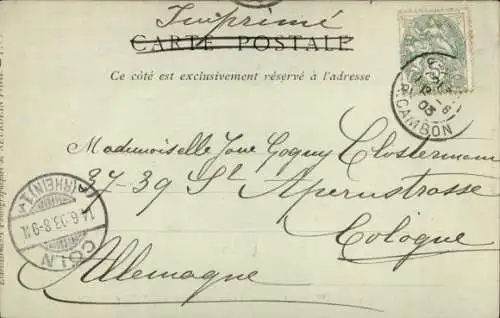 Imprimé
CARTE POSTALE
Ce côté est exclusivement réservé à l'adresse
R. CAMBON
03
Mademoiselle Jane Goguy Clostermann
37-39 St Apernstrasse
Cologne
Allemagne
CÖLN
14.6.03.8-9N.
(RHEIN) 1